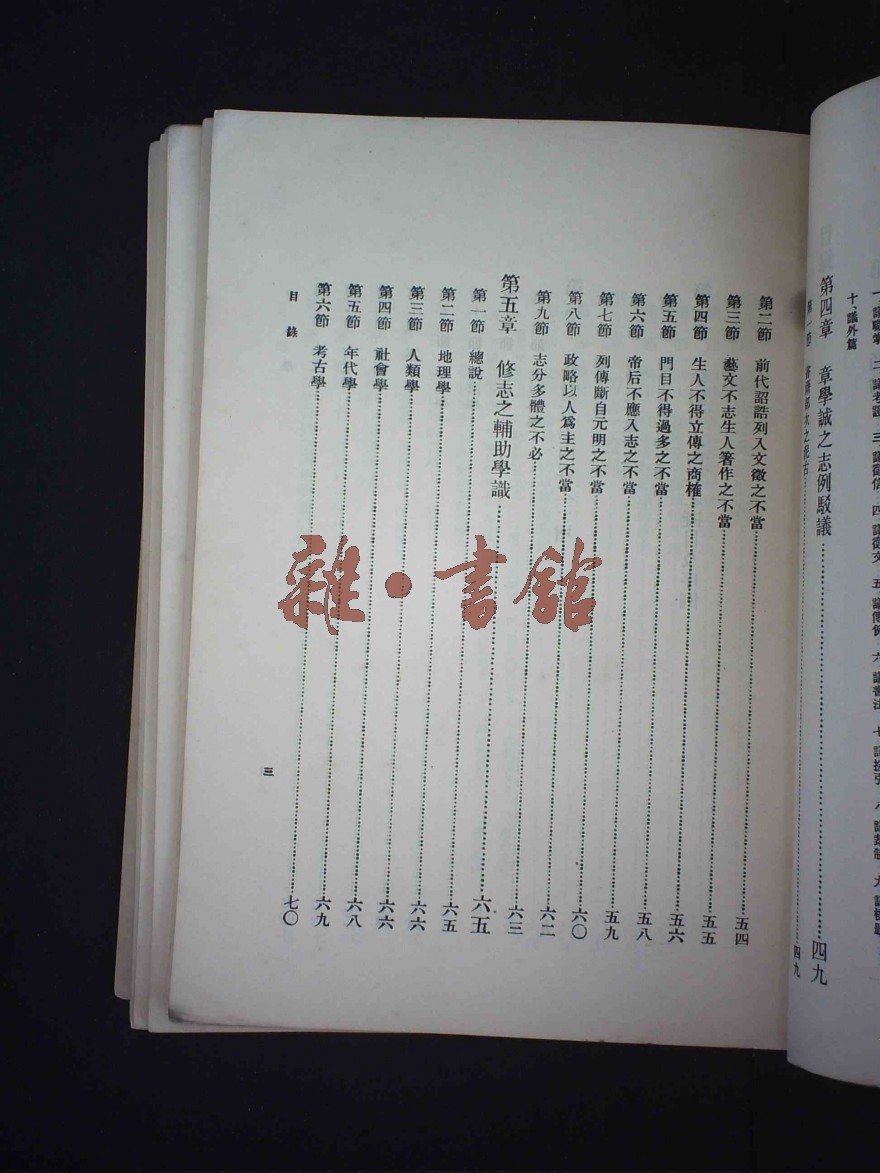 十、議外篇
第四章 章學誠之志例駁議……四九
四九
第二節 前代詔誥列入文徵之不當……五四
第三節 藝文不志生人著作之不當……五五
第四節 生人不得立傳之商榷……五六
第五節 門目不得過多之不當……五八
第六節 帝后不應入志之不當……五九
第七節 列傳斷自元明之不當……六〇
第八節 政略以人爲主之不當……六二
第九節 志分多體之不必……六三
第五章 修志之輔助學識……六五
第一節 總說……六五
第二節 地理學……六六
第三節 人類學……六六
第四節 社會學……六八
第五節 年代學……六九
第六節 考古學……七〇
目錄
三
雜·書館